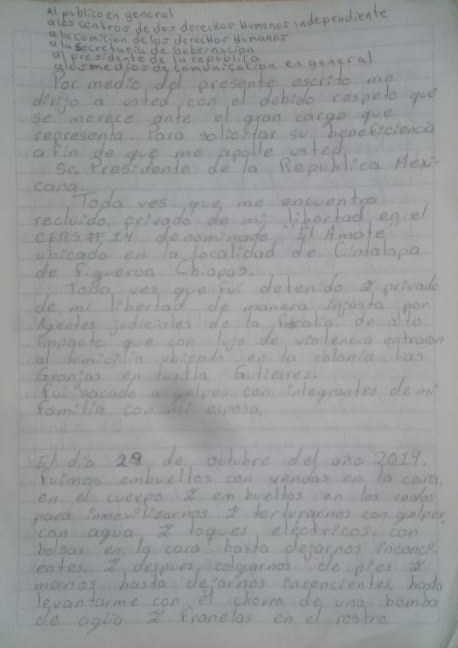 Al publico en general
a los centros de dos derechos Humonos independiente
a la comicion de los derechos Humanos
a la secretaria de Gobernacion
al presidente de la republica
a los medios de comunicacion en general
Por medio del presente escrito me
dirijo a usted, con el debido respeto que
se merece ante el gran cargo que
representa. Para solicitar su beneficiencia
a fin de que me apolle usted.
Sr. Presidente de la Republica Mexi-
cana.
Toda ves que me encuentro
recluido, privado de mi libertad, en el
CERS# 14 denominado "El Amate"
ubicado en la localidad de Cintalapa
de Figueroa Chiapas.
Toda ves que fui detenido y privado
de mi libertad de manera injusta por
Agentes judiciales de la fiscalia de alto
impacto que con lujo de violencia entraron
al domicilio ubicado en la colonia Las
Granjas en tuxtla Gutierres.
Fui sacado a golpes con integrantes de mi
familia con mi esposa.
El dia 29 de octubre del año 2019.
Fuimos embueltos con vendas en la cara,
en el cuerpo y embueltos en las
para inmovilizarnos y torturarnos con golpes,
con agua y toques eléctricos, con
bolsas en la cara hasta dejarnos inconci-
entes, y despues, colgarnos de pies y
manos hasta dejarnos inconcientes, hasta
levantarme con el chorro de una bomba
de agua y franelas en el rostro